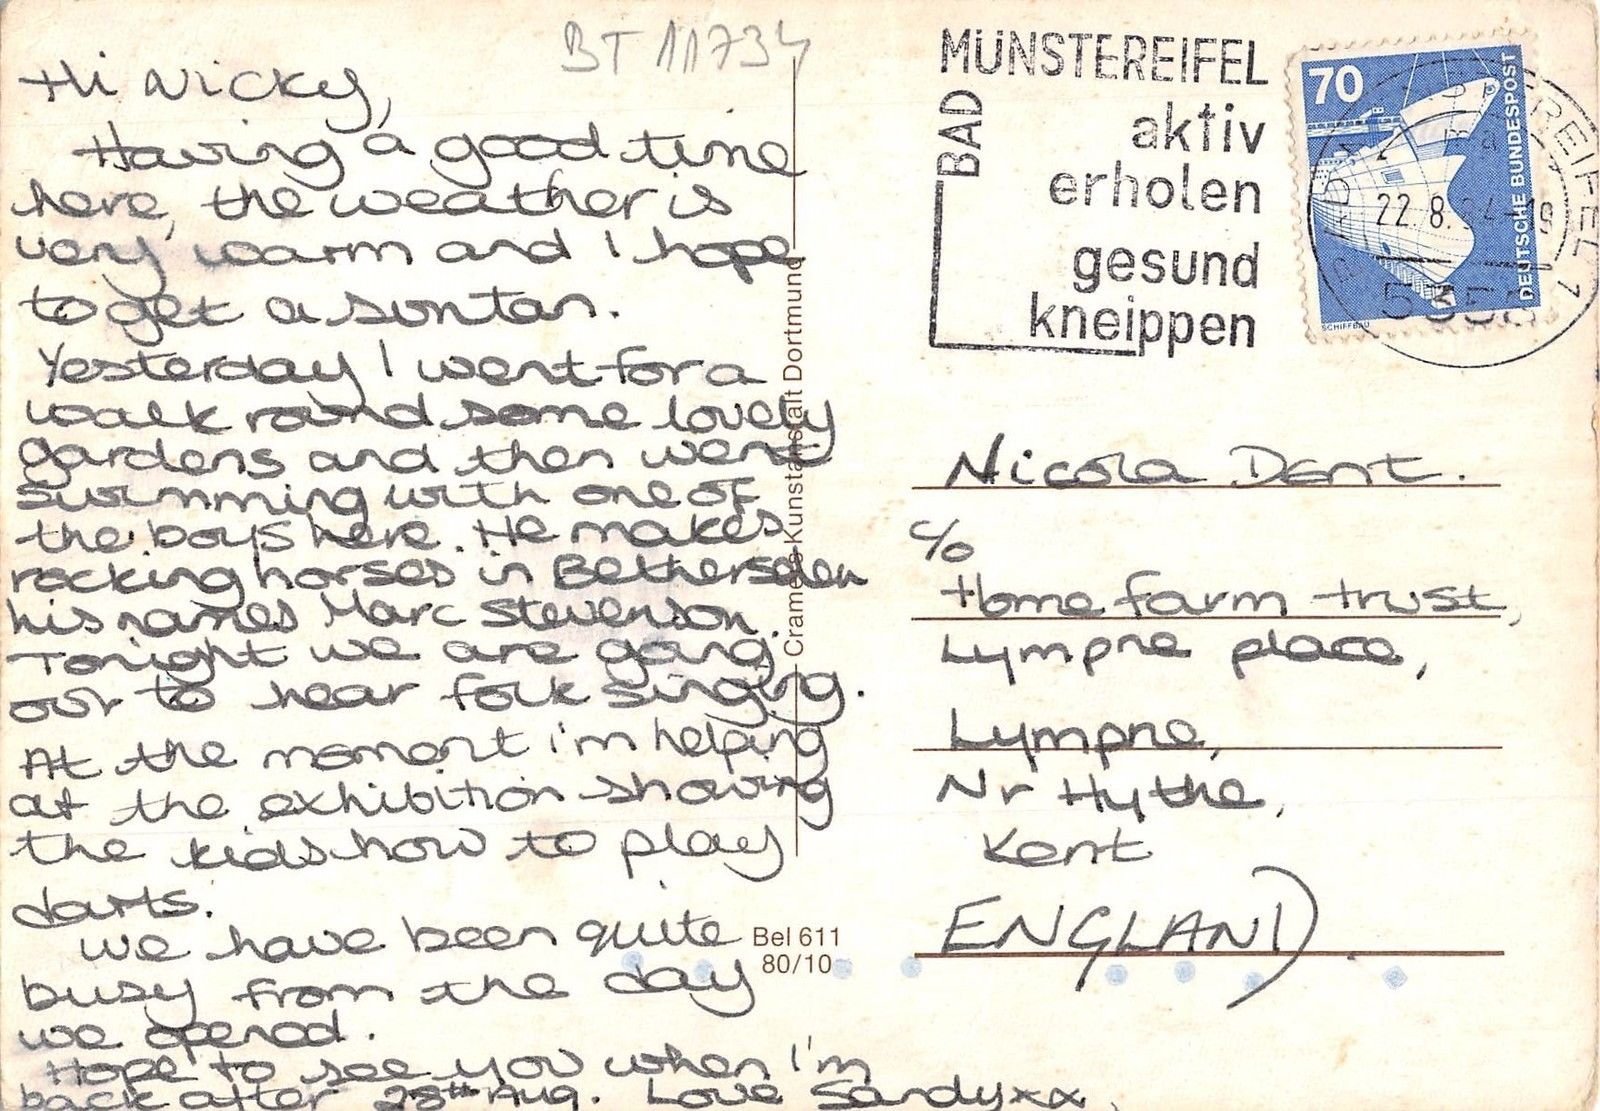 BT 11734
Hi Nicky,
Having a good time
here, the weather is
very warm and I hope
to get a suntan.
Yesterday I went for a
walk round some lovely
gardens and then went
swimming with one of
the boys here. He makes
rocking horses in Bethersden
his names Marc Stevenson.
Tonight we are going
out to hear folk singing.
At the moment i'm helping
at the exhibition showing
the kids how to play
darts.
we have been quite
busy from the day
we opened.
Hope to see you when I'm
back after 28th Aug. Love Sandyxx.
Cramers Kunstanstalt Dortmund
Bel 611
80/10
BAD
MÜNSTEREIFEL
aktiv
erholen
gesund
kneippen
70
DEUTSCHE BUNDESPOST
SCHIFFBAU
22.8.84-19
Nicola Dent.
c/o
Home farm trust,
Lympne place,
Lympne,
Nr Hythe,
Kent
ENGLAND.